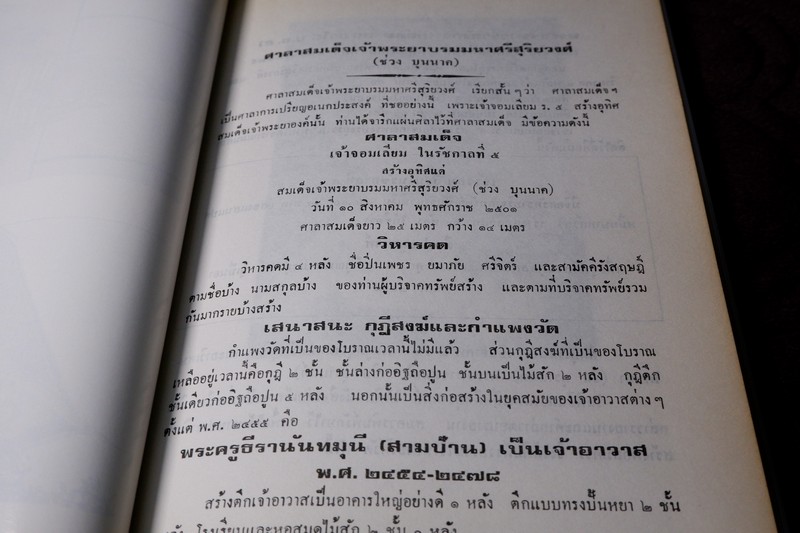 ศาลาสมเด็จเจ้าพระยาบรมมหาศรีสุริยวงศ์
(ช่วง บุนนาค)
ศาลาสมเด็จเจ้าพระยาบรมมหาศรีสุริยวงศ์ เรียกสั้น ๆ ว่า ศาลาสมเด็จ ฯ
เป็นศาลาการเปรียญอเนกประสงค์ ที่ชออย่างนี้ เพราะเจ้าจอมเลียม ร. ๕ สร้างอุทิศ
สมเด็จเจ้าพระยาองค์นั้น ท่านได้จารึกแผ่นศิลาไว้ที่ศาลาสมเด็จ มีข้อความดังนี้
ศาลาสมเด็จ
เจ้าจอมเลียม ในรัชกาลที่ ๕
สร้างอุทิศแต่
สมเด็จเจ้าพระยาบรมมหาศรีสุริยวงศ์ (ช่วง บุนนาค)
วันที่ ๑๐ สิงหาคม พุทธศักราช ๒๕๐๑
ศาลาสมเด็จยาว ๒๕ เมตร กว้าง ๑๔ เมตร
วิหารคต
วิหารคตมี ๔ หลัง ชื่อปิ่นเพชร ยมาภัย ศรีจิตร์ และสามัคคีรังสฤษฎิ์
ตามชื่อบ้าง นามสกุลบ้าง ของท่านผู้บริจาคทรัพย์สร้าง และตามที่บริจาคทรัพย์รวม
กันมากรายบ้างสร้าง
เสนาสนะ กุฏีสงฆ์และกำแพงวัด
กำแพงวัดที่เป็นของโบราณเวลานี้ไม่มีแล้ว ส่วนกุฎีสงฆ์ที่เป็นของโบราณ
เหลืออยู่เวลานี้คือกุฎี ๒ ชั้น ชั้นล่างก่ออิฐถือปูน ชั้นบนเป็นไม้สัก ๒ หลัง กุฎีตึก
ชั้นเดียวก่ออิฐถือปูน ๕ หลัง นอกนั้นเป็นสิ่งก่อสร้างในยุคสมัยของเจ้าอาวาสต่างๆ
ตั้งแต่ พ.ศ. ๒๔๕๕ คือ
พระครูธีรานันทมุนี (สามบ้าน) เป็นเจ้าอาวาส
พ.ศ. ๒๔๕๔-๒๔๗๘
สร้างตึกเจ้าอาวาสเป็นอาคารใหญ่อย่างดี ๑ หลัง ตึกแบบทรงปั้นหยา ๒ ชั้น
โรงเรียนและหอสมุดไม้สัก ๒ ชั้น ๑ หลัง